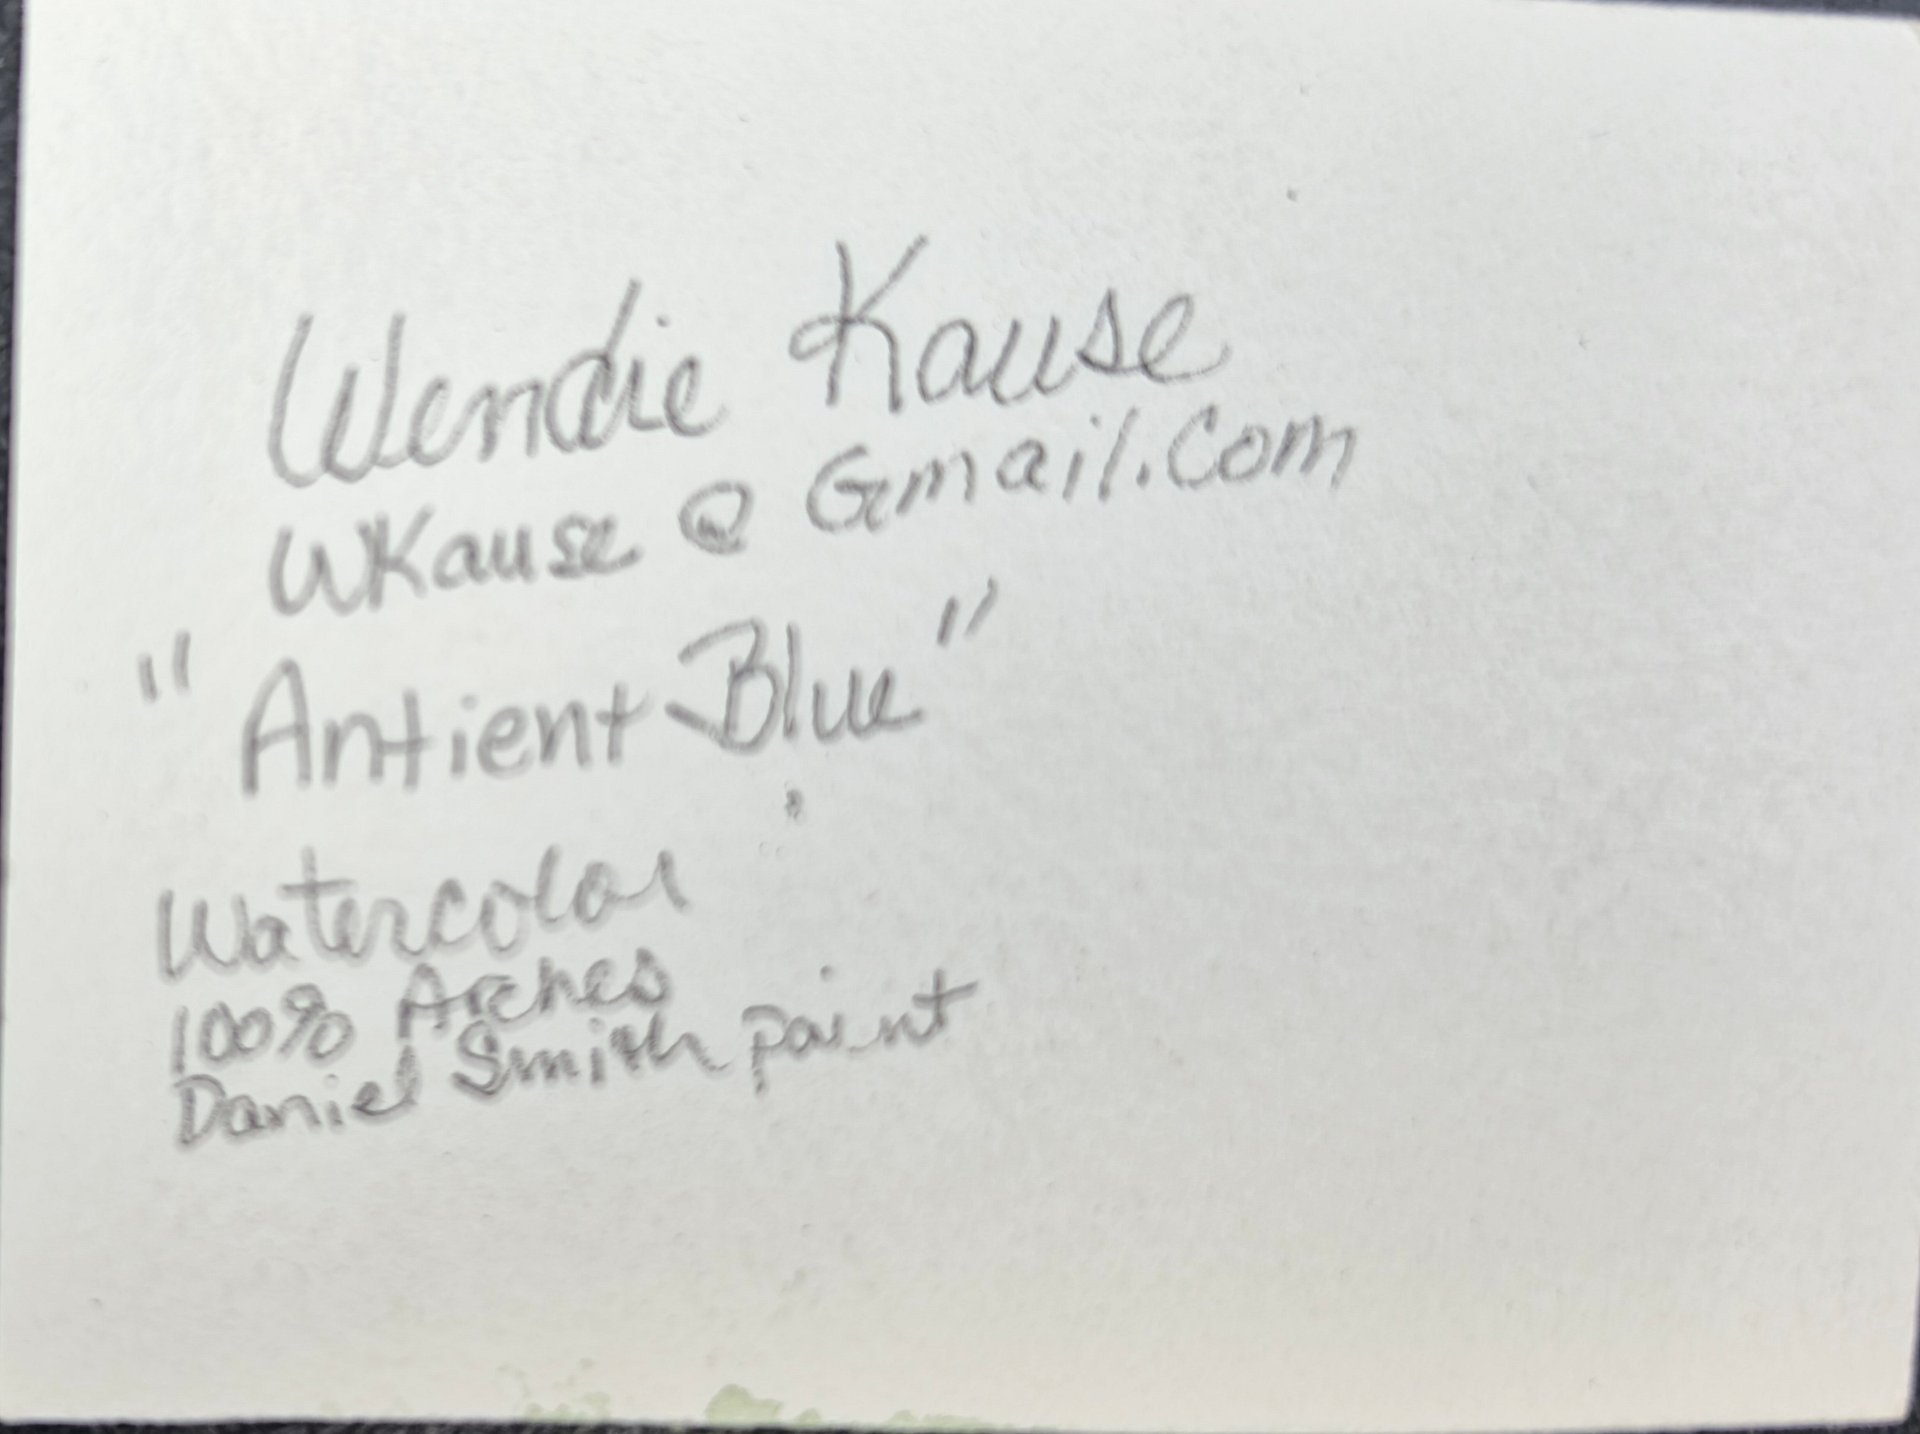 Wendie Kause
WKause @ Gmail.Com
"Antient Blue"
Watercolor
100% Arches
Daniel Smith paint